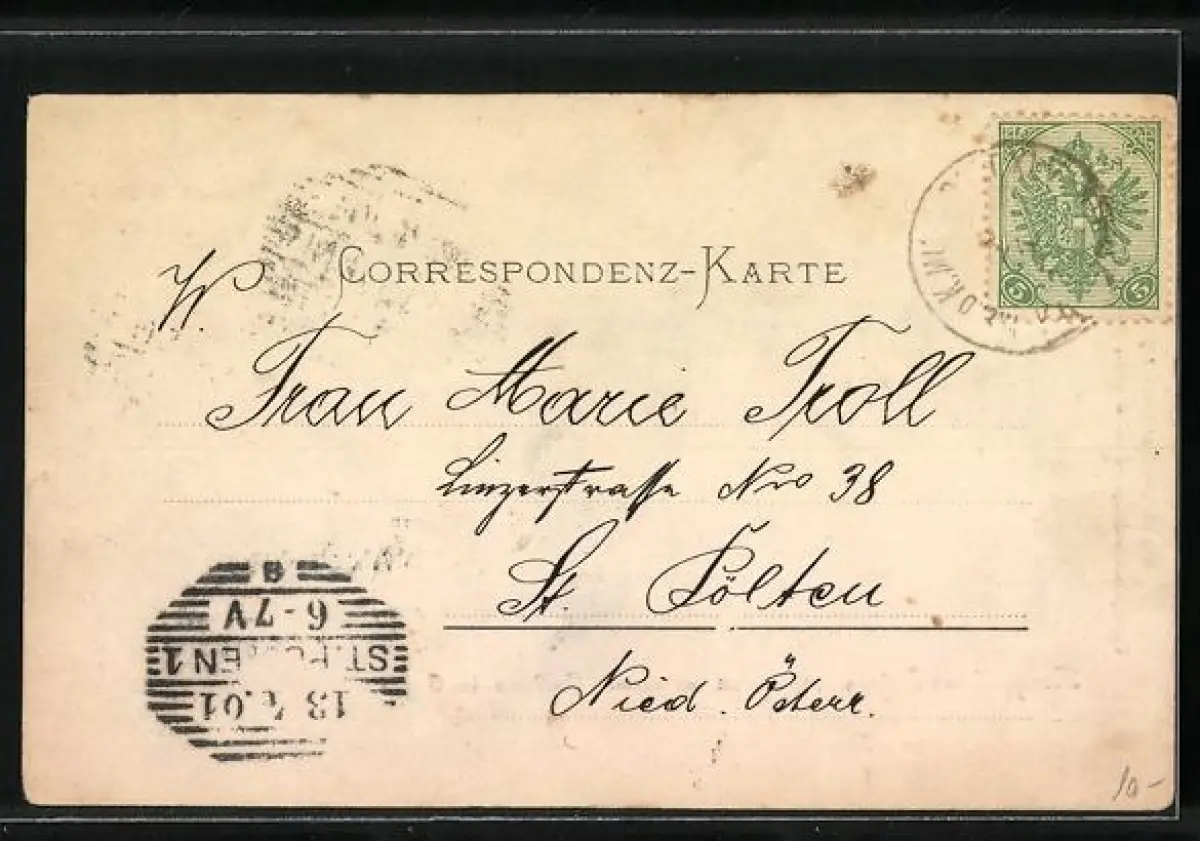 CORRESPONDENZ-KARTE
W.
5 5
Frau Marie Troll
Linzerstrasse Nro 38
St. Pölten
Nied. Österr.
8
6-7V
ST. PÖLTEN 1
13 01
10-